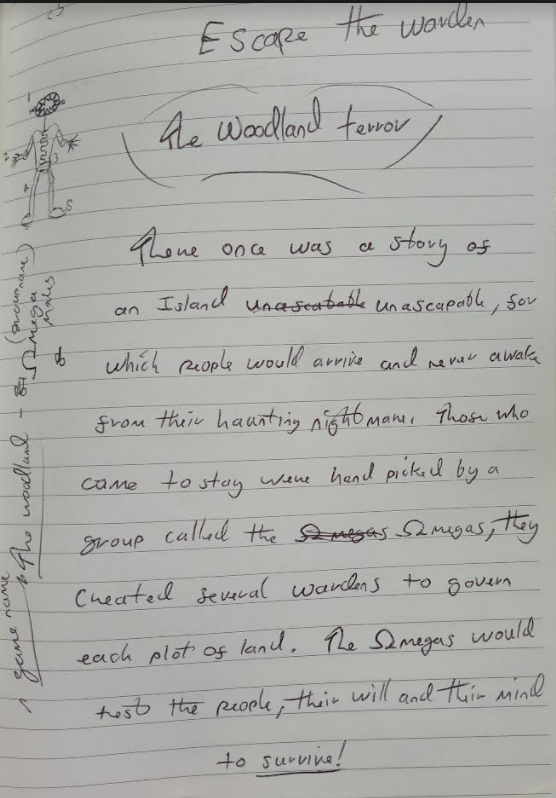 Escape the warden
The Woodland terror
There once was a story of
an Island unascabable unascapable, for
which people would arrive and never awake
from their haunting nightmare. Those who
came to stay were hand picked by a
group called the Ωmegas Ωmegas, they
Created several wardens to govern
each plot of land. The Ωmegas would
test the people, their will and their mind
to survive!
game name
The woodland - Ωmega